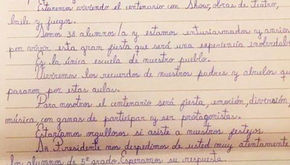 Estaremos viviendo el centenario con show, obras de teatro,
baile y juegos.
Somos 38 alumnos/a y estamos entusiasmados y ansiosos
por vivir esta gran fiesta que será una experiencia inolvidable
Es la única escuela de nuestro pueblo.
Viviremos los recuerdos de nuestros padres y abuelos que
pasaron por estas aulas.
Para nosotros el centenario será fiesta, emoción, diversión,
música, con ganas de participar y ser protagonistas.
Estaríamos orgullosos si asiste a nuestros festejos.
Sr. Presidente nos despedimos de usted muy atentamente
los alumnos de 5º grado. Esperamos su respuesta.